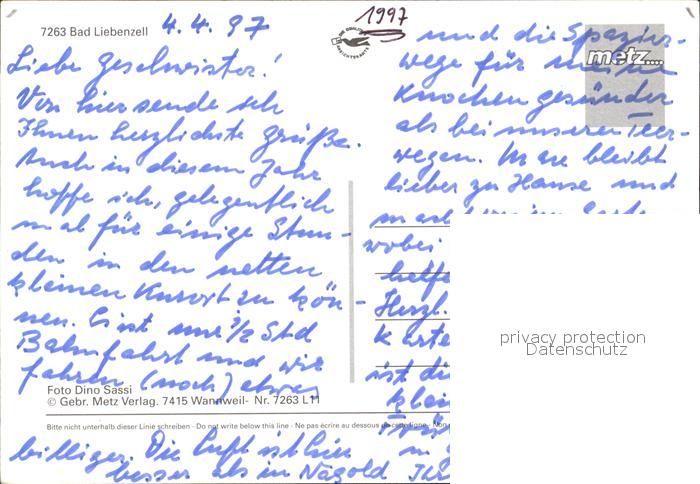 7263 Bad Liebenzell 4.4.97
1997
Liebe Geschwister!
Von hier sende ich
Ihnen herzlichste Grüße.
Auch in diesem Jahr
hoffe ich, gelegentlich
mal für einige Stun-
den in den netten
kleinen Kurort zu kön-
nen. Es ist nur ½ Std
Bahnfahrt und wir
fahren (noch) etwas
Foto Dino Sassi
© Gebr. Metz Verlag. 7415 Wannweil- Nr. 7263 L11
Bitte nicht unterhalb dieser Linie schreiben - Do not write below this line - Ne pas écrire au dessous de cette ligne - Non
billiger. Die Luft ist hier
besser als in Nagold
metz....
und die Spazier-
wege für meine
Knochen gesünder
als bei unseren Teer-
wegen. Mare bleibt
lieber zu Hause und
wobei
helfe
Herzl.
Karte
ist di
klei
Ihr
privacy protection
Datenschutz